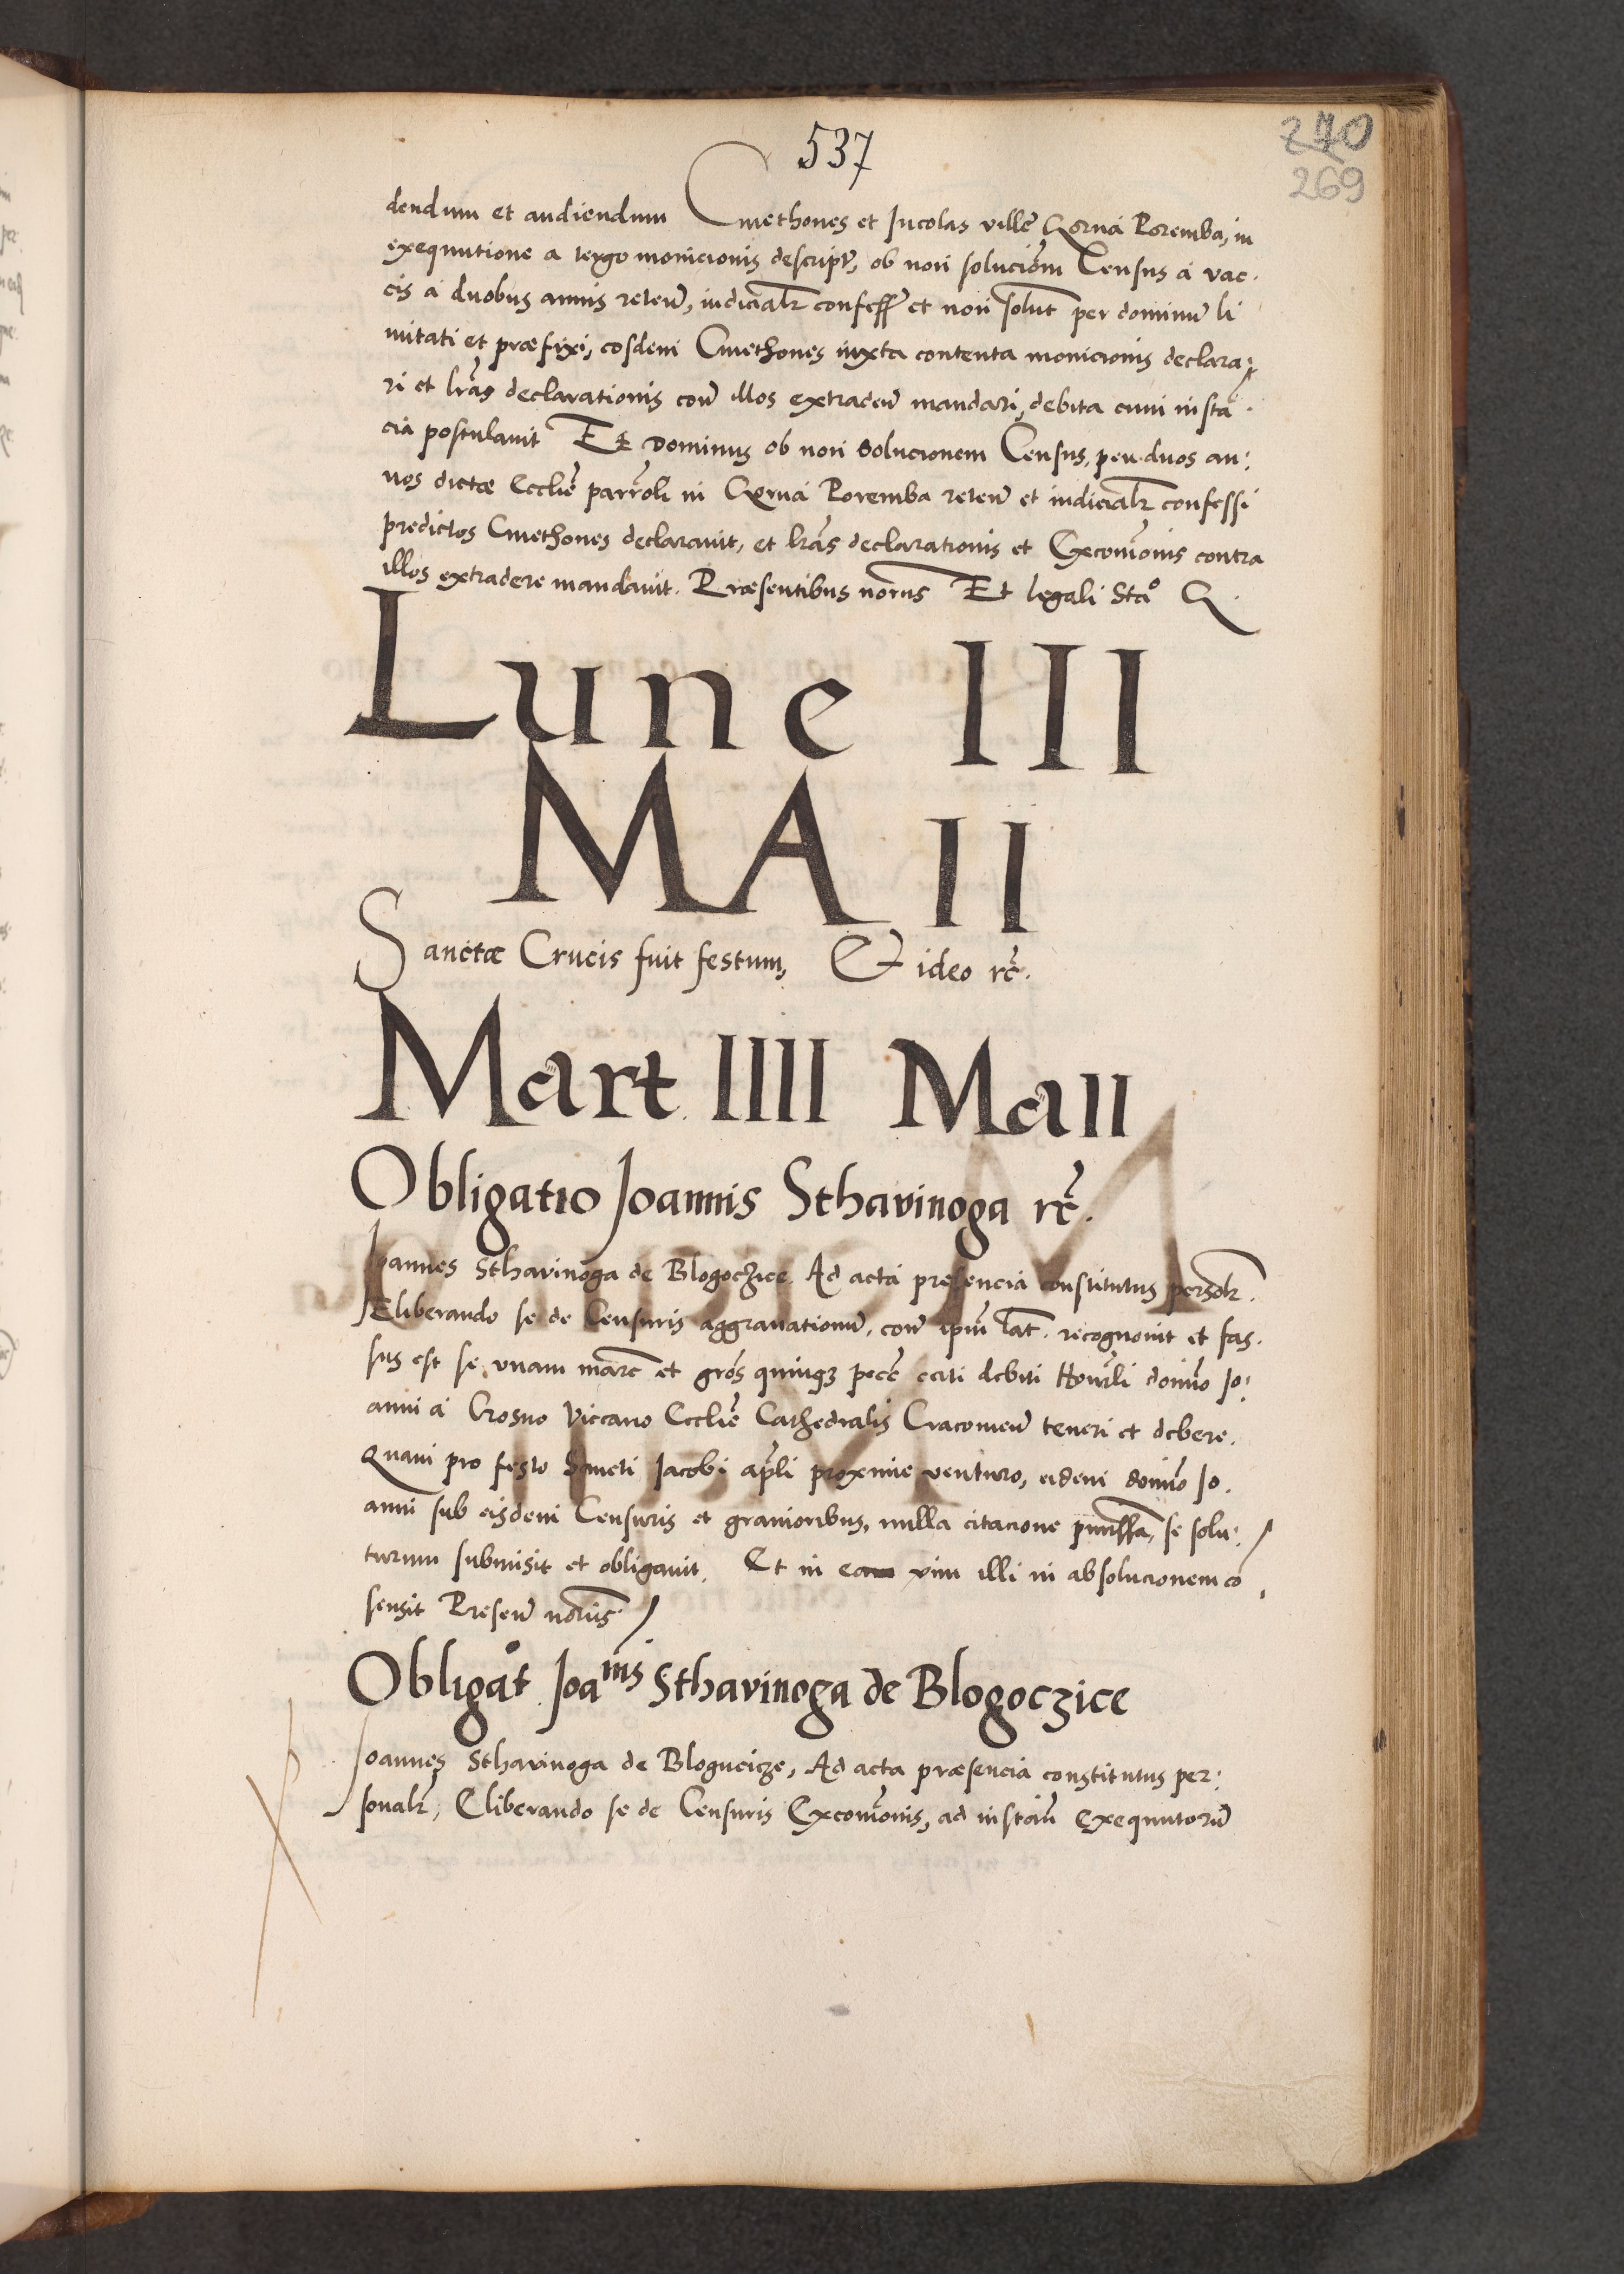 537
270
269
dendum et audiendum Cmethones et Incolas villę Gorna Poremba, in
exequutione a tergo monicionis descript, ob non soluciom Census a vac.
cis a duobus annis reten, iudicialr confess et non solut per dominum li
mitati et præfixi, eosdem Cmethones iuxta contenta monicionis declara:
ri et lras declarationis con illos extraden mandari, debita cum insta.
cia postulavit Et Dominus ob non solucionem Census, per duos an:
nos dictæ Ecclie parroli in Gorna Poremba reten et iudicialr confessi
predictos Cmethones declaravit, et lras declarationis et Excomonis contra
illos extradere mandavit. Præsentibus norus Et legali Sta°
Lune III
MAII
Sanctæ Crucis fuit festum, Et ideo rc.
Mart. IIII MaII
Obligatio Joannis Sthavinoga rc.
Joannes Sthavinoga de Blogoczice. Ad acta presencia constitutus persolr.
Eliberando se de Censuris aggravationum, con ipm lat. recognovit et fas.
sus est se, unam marc et gros quinqz pecc eciti debiti Honrli domno Jo:
anni a Crosno Viccario Ecclie Cathedralis Cracovien teneri et debere.
Quam pro festo Sancti Jacobi apli proxime venturo, eidem domno Jo.
anni sub eisdem Censuris et gravioribus, nulla citacione pmissa, se solu:
turum submisit et obligavit. Et in vim illi in absolucionem co
sensit Presen norus
Obligat° Joannis Sthavinoga de Blogoczice
Joannes Sthavinoga de Blogucicze, Ad acta præsencia constitutus per:
sonalr, Eliberando se de Censuris Excomonis, ad instan exequutorum